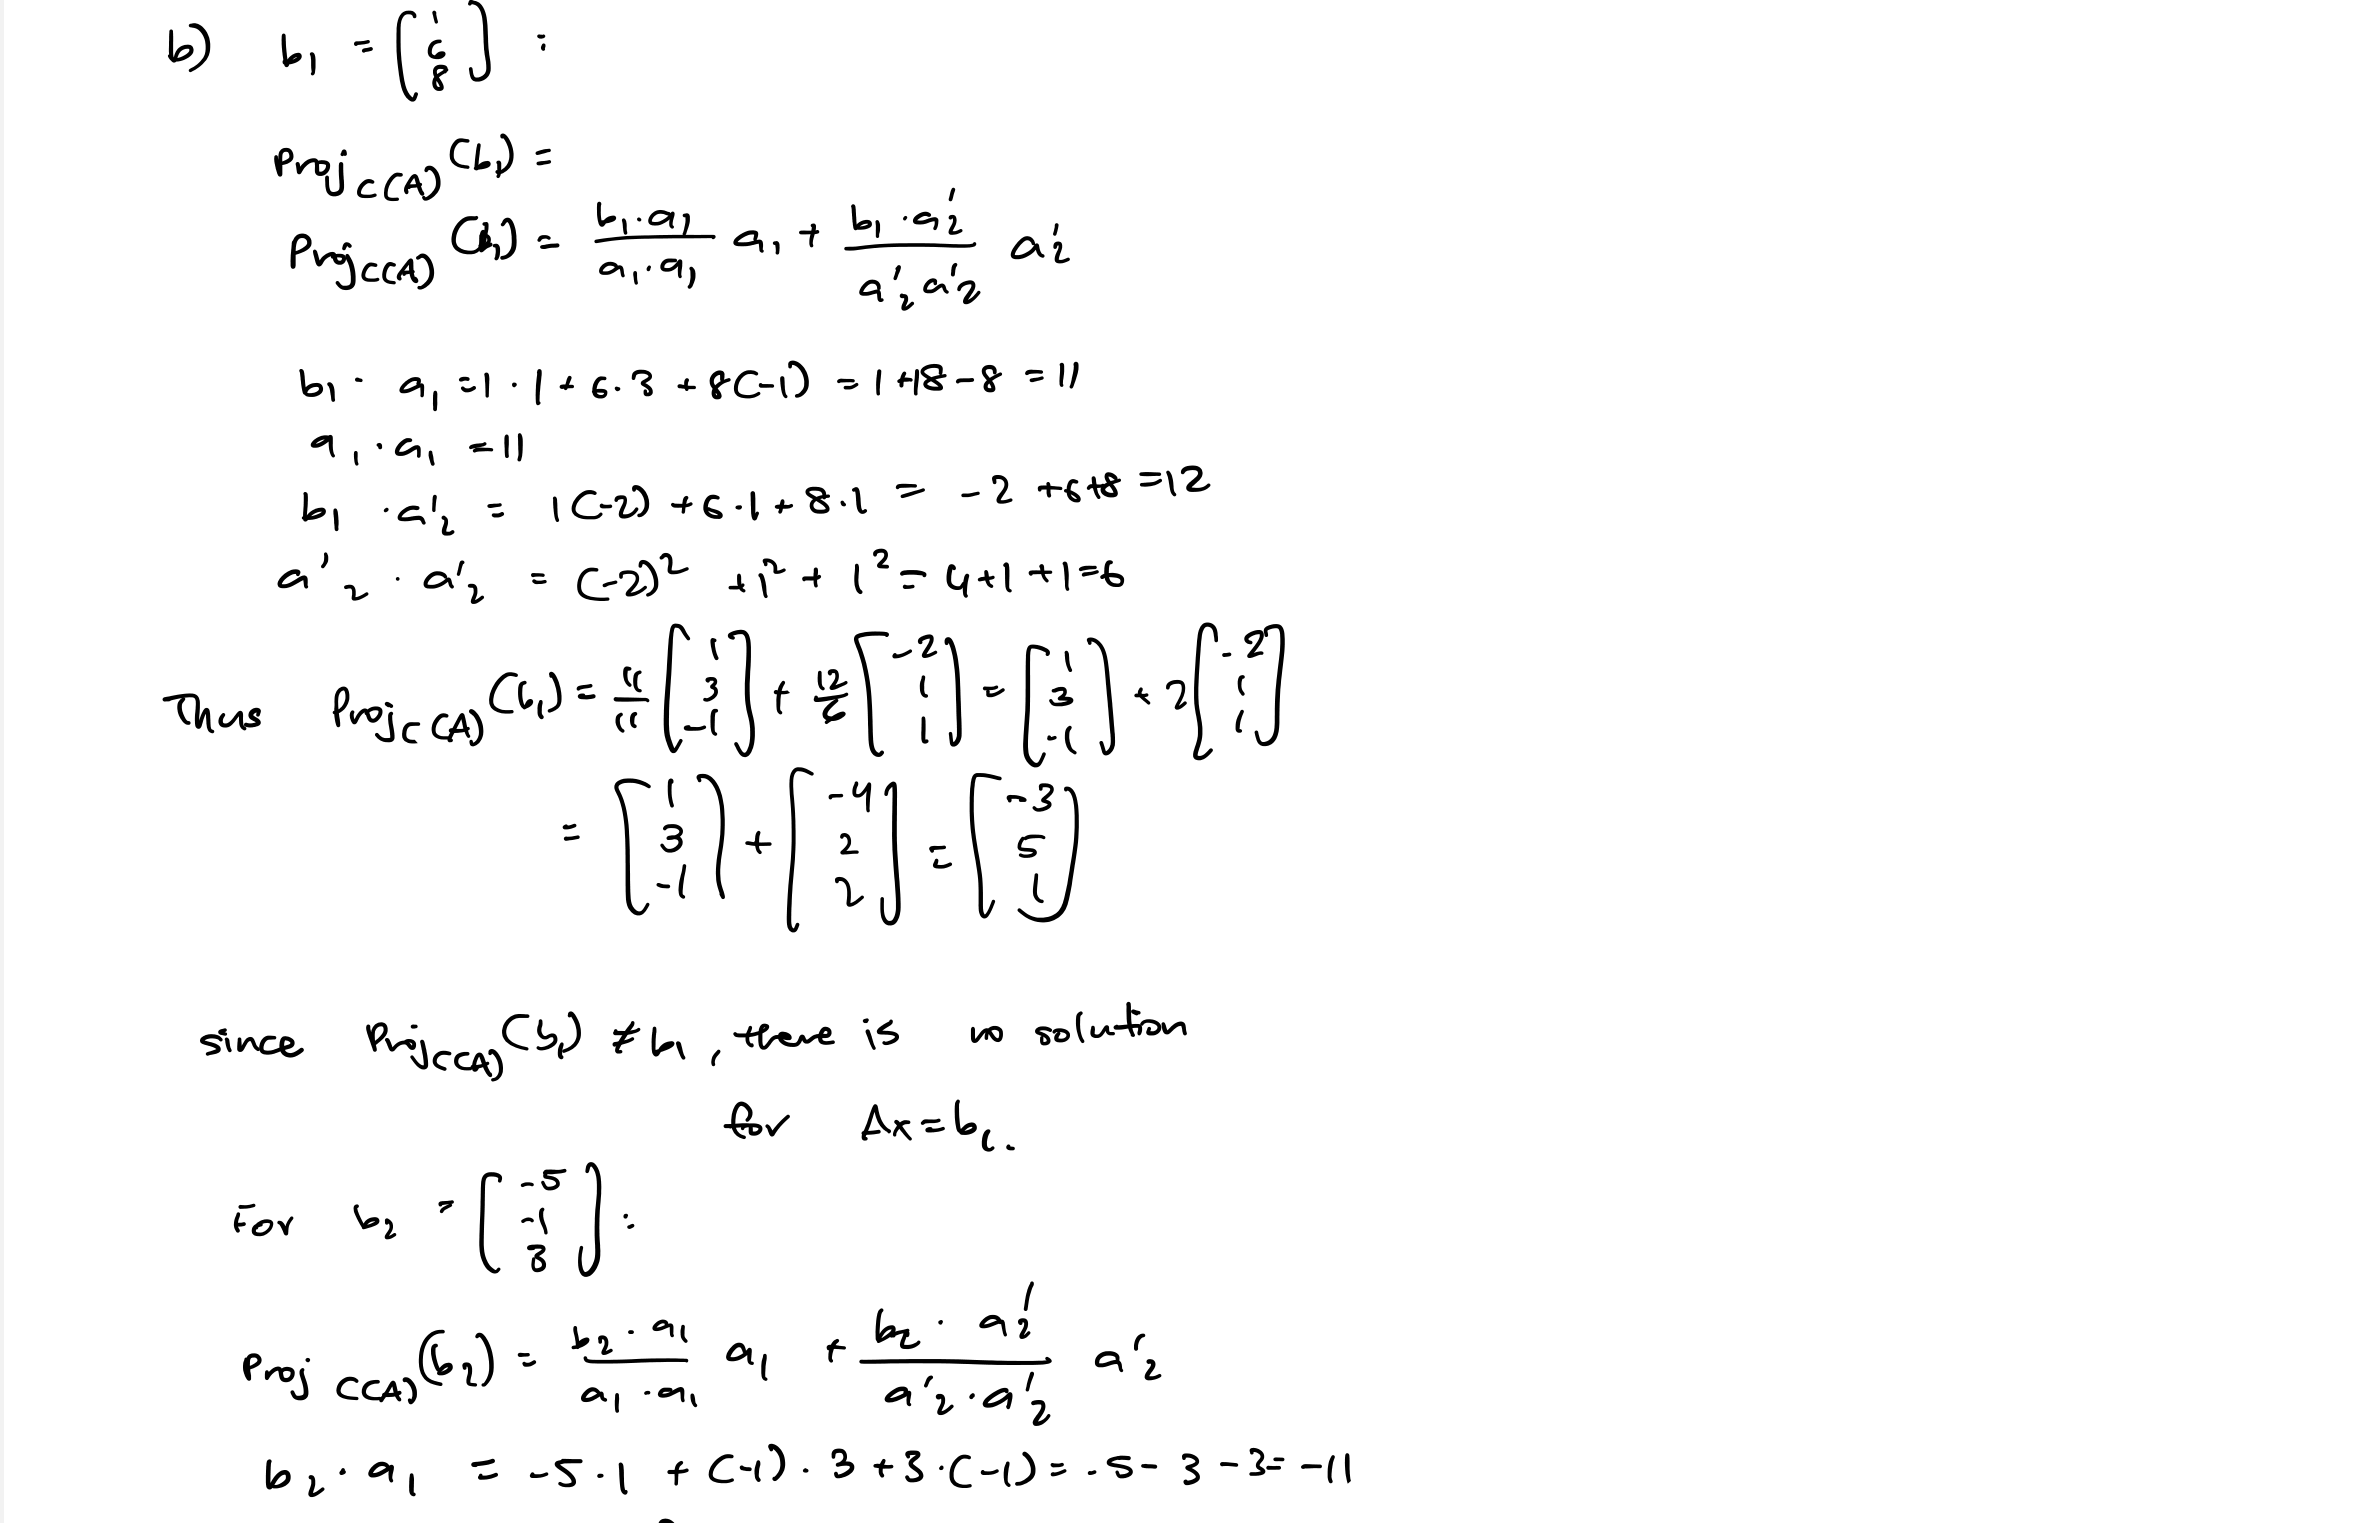 b) b₁ = [1 6 8] :
Proj_C(A) (b₁) =
Proj_C(A) (b₁) = (b₁ · a₁)/(a₁ · a₁) a₁ + (b₁ · a'₂)/(a'₂ a'₂) a'₂
b₁ · a₁ = 1 · 1 + 6 · 3 + 8(-1) = 1 + 18 - 8 = 11
a₁ · a₁ = 11
b₁ · a'₂ = 1(-2) + 6 · 1 + 8 · 1 = -2 + 6 + 8 = 12
a'₂ · a'₂ = (-2)² + 1² + 1² = 4 + 1 + 1 = 6
Thus Proj_C(A) (b₁) = 11/11 [1 3 -1] + 12/6 [-2 1 1] = [1 3 -1] + 2 [-2 1 1]
= [1 3 -1] + [-4 2 2] = [-3 5 1]
since Proj_C(A) (b₁) ≠ b₁, there is no solution
for Ax = b₁.
For b₂ = [-5 -1 3] :
Proj_C(A) (b₂) = (b₂ · a₁)/(a₁ · a₁) a₁ + (b₂ · a'₂)/(a'₂ · a'₂) a'₂
b₂ · a₁ = -5 · 1 + (-1) · 3 + 3 · (-1) = -5 - 3 - 3 = -11